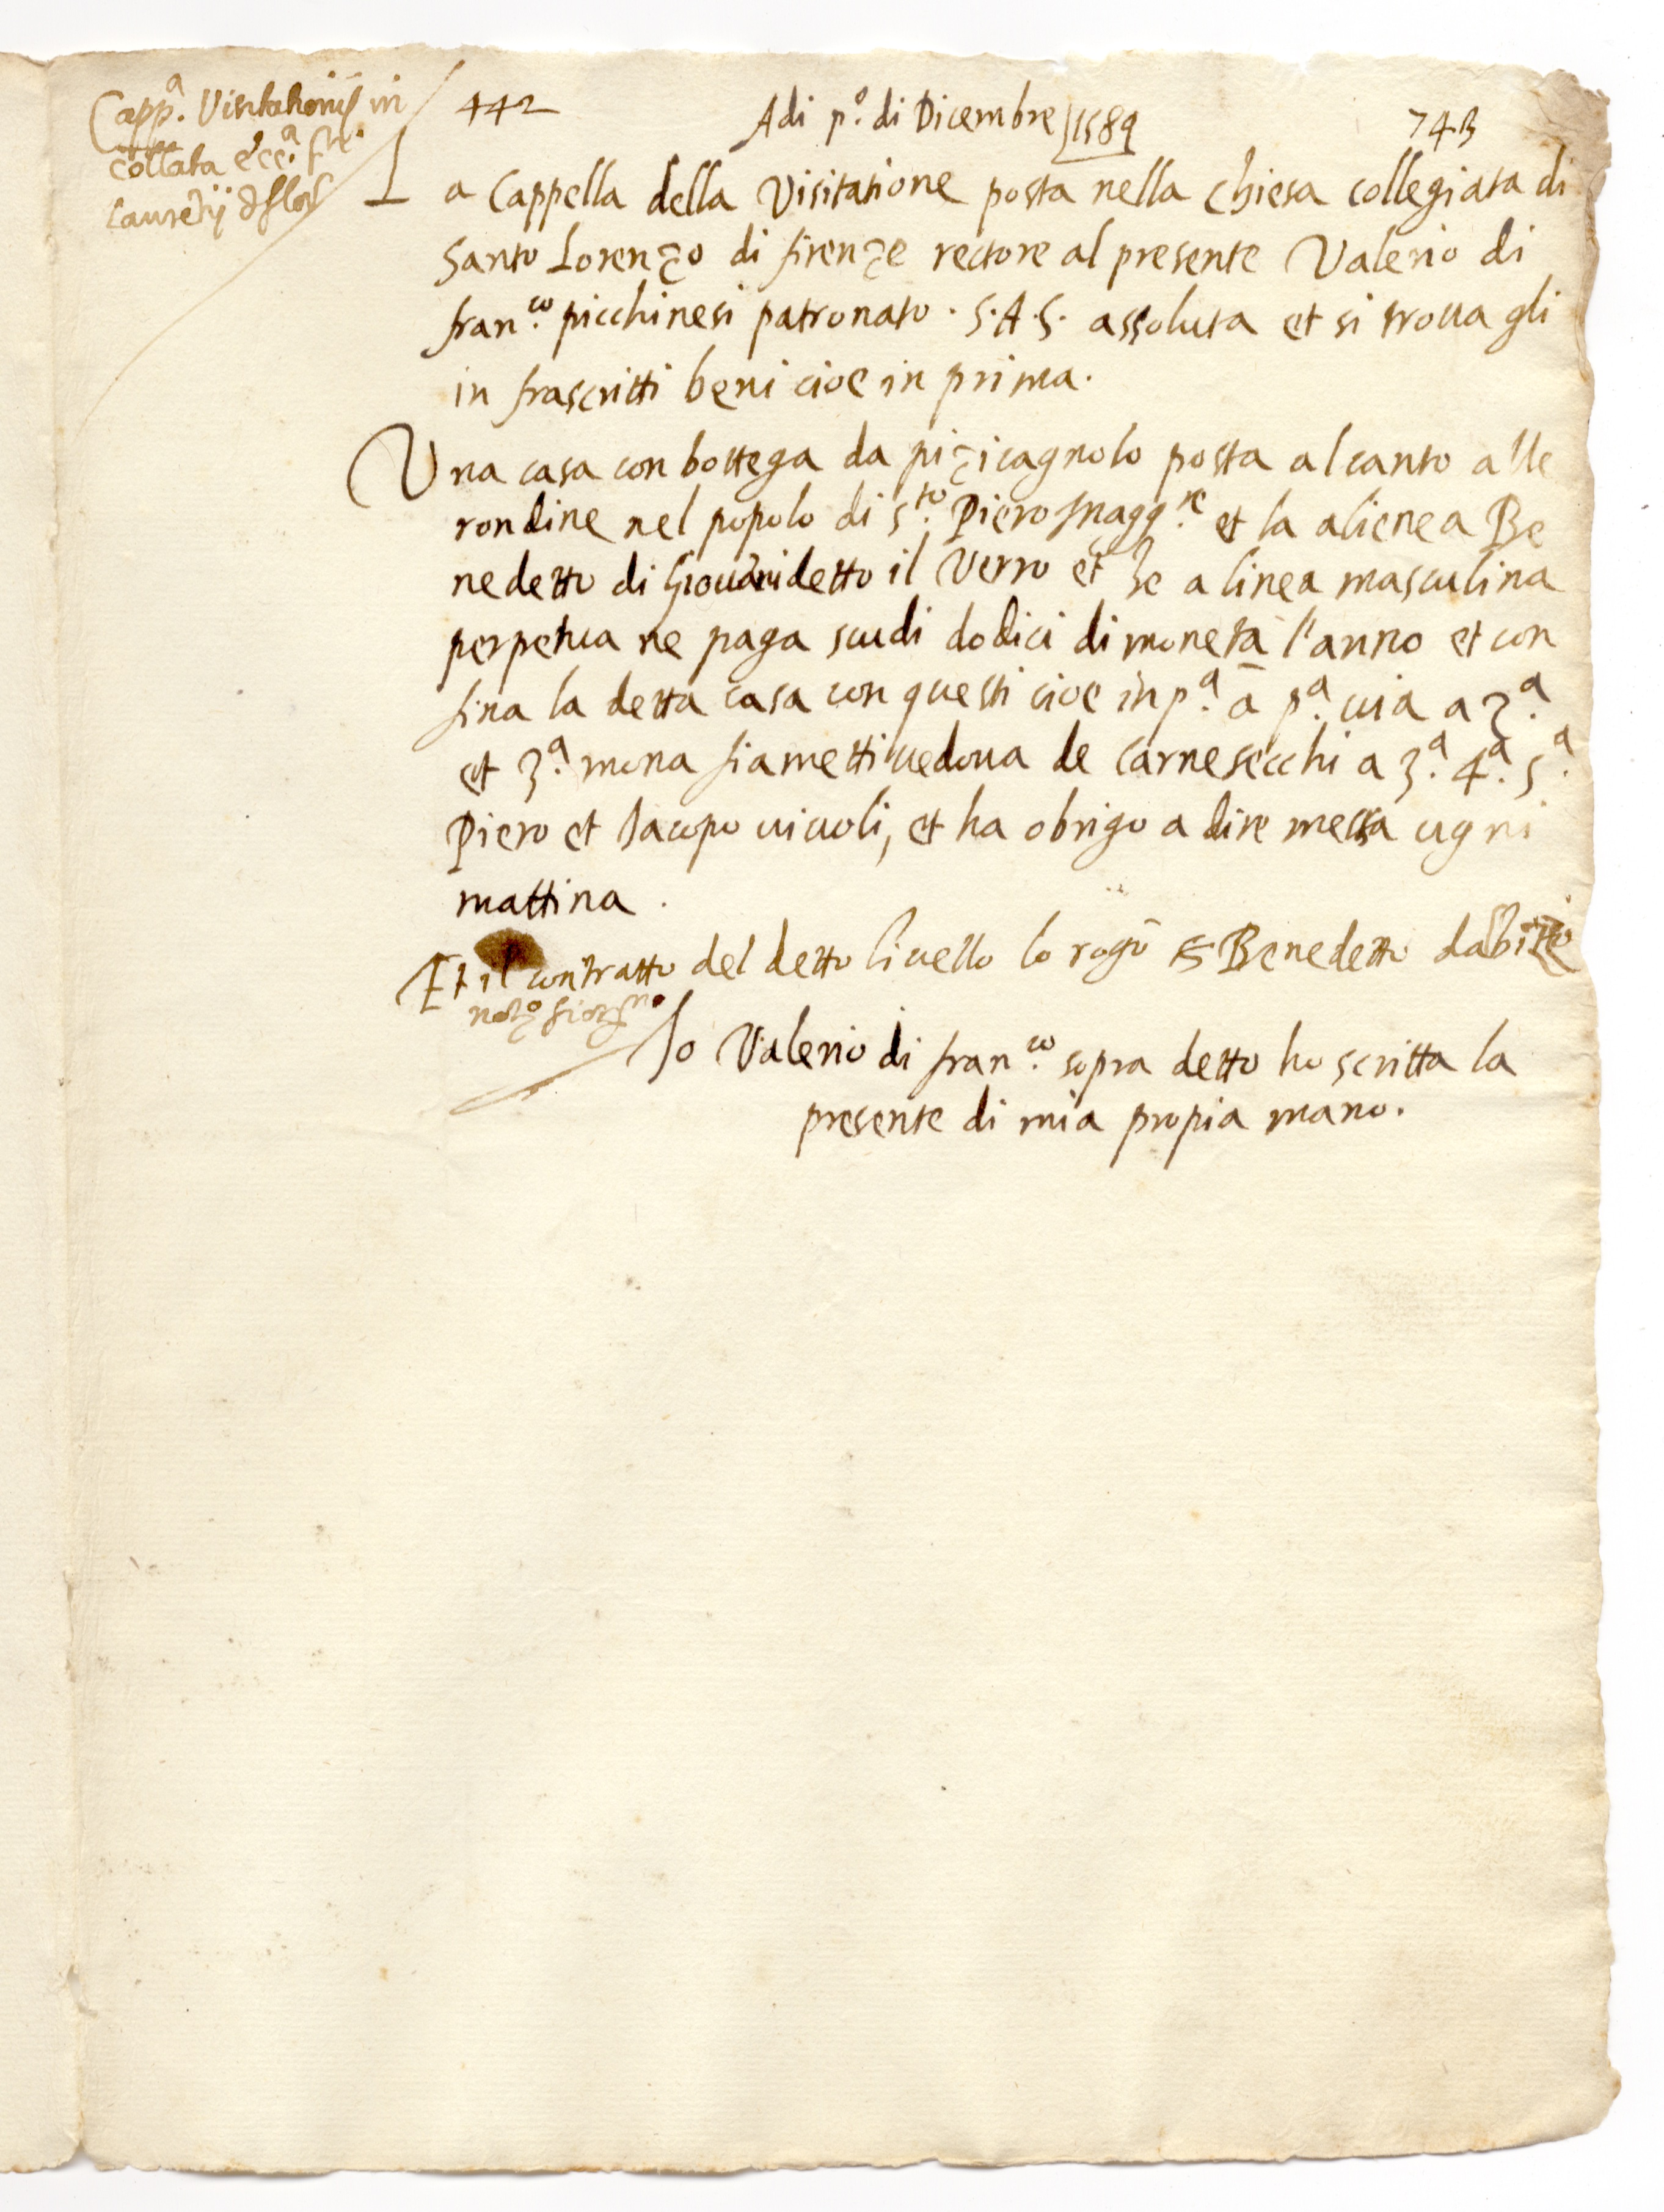 Capp.ª Visitationis in
collata ecc.ª S.ti
Laurētij d Flor
442
Adi p.º di Dicembre 1589
743
La Cappella della Visitatione posta nella chiesa collegiata di
Santo Lorenzo di firenze rectore al presente Valerio di
fran.co picchinesi patronato · S·A·S· assoluta et si troua gli
in frascritti beni cioe in prima.
Una casa con bottega da pizicagnolo posta al canto alle
rondine nel popolo di S.to Piero magg.re et la alienea Be
nedetto di Giouāni detto il Verro et Se a linea masculina
perpetua ne paga scudi dodici di moneta l'anno et con
fina la detta casa con questi cioe in p.ª ā p.ª uia a 2.ª
et 3.ª mona fiametti uedoua de Carnesecchi a 3.ª 4.ª 5.ª
Piero et Jacopo uiuoli, et ha obrigo a dire messa ugni
mattina.
Et il contratto del detto liuello lo rogò S Benedetto dabizo
not.º fior.no
Jo Valerio di fran.co sopra detto ho scritta la
presente di mia propia mano.